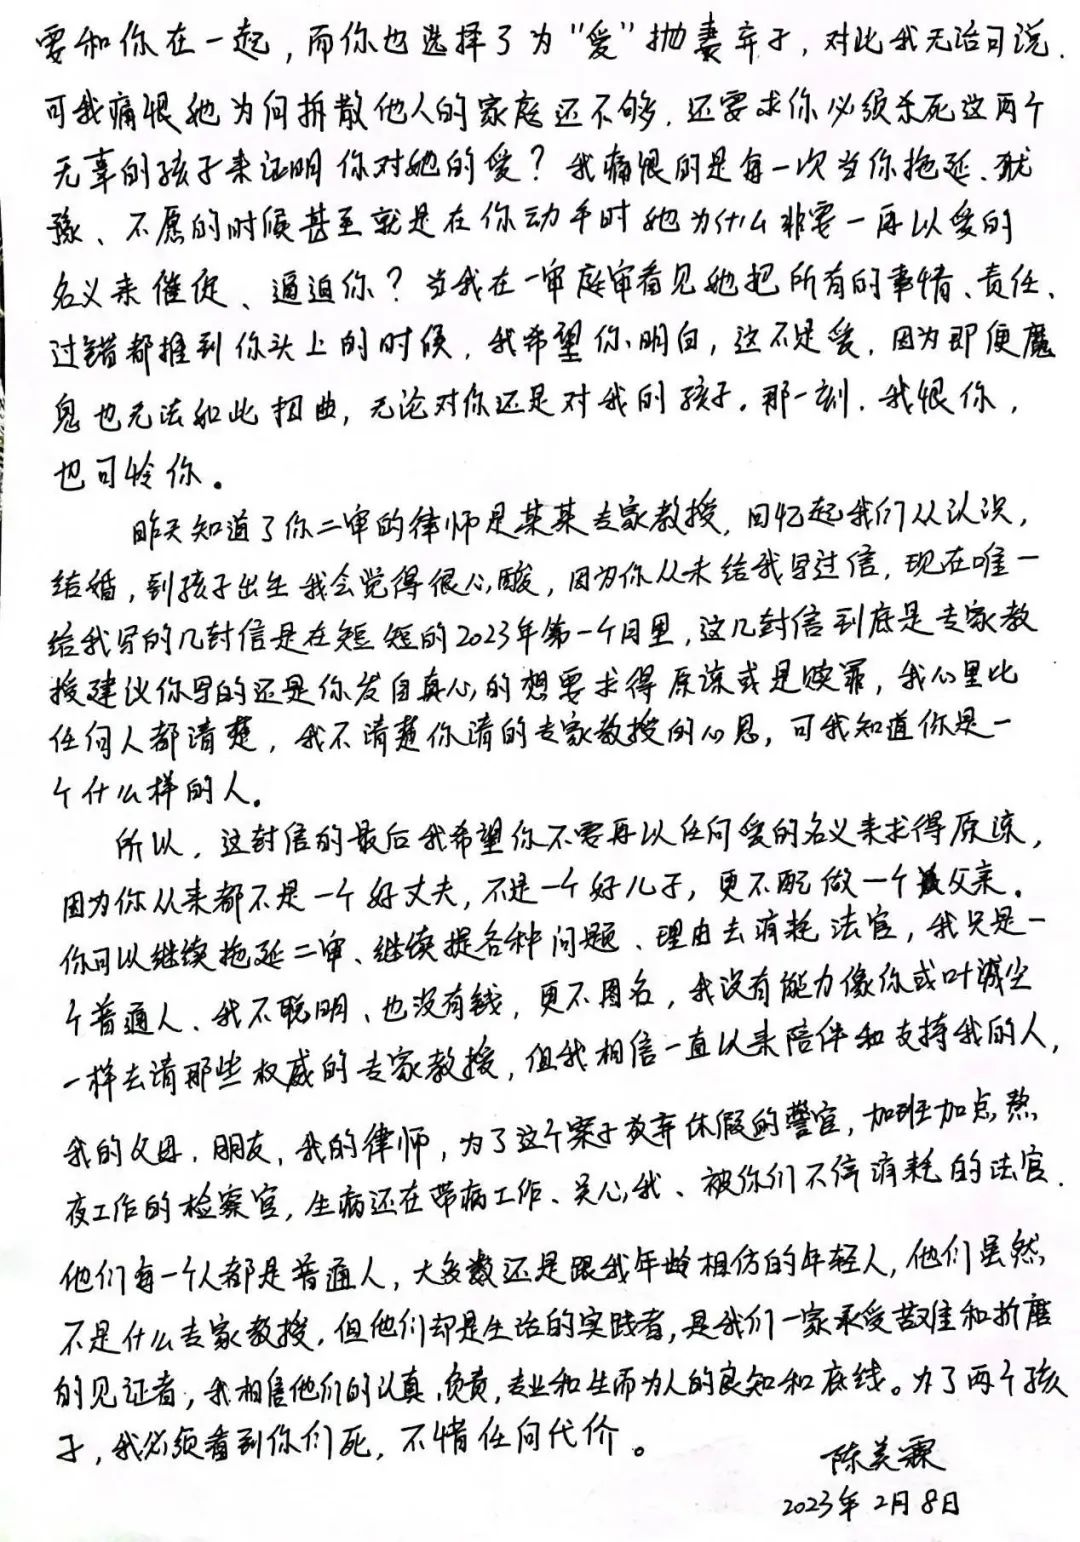 要和你在一起，而你也选择了为“爱”抛妻弃子，对此我无话可说．
可我痛恨她为何拆散他人的家庭还不够．还要求你必须杀死这两个
无辜的孩子来证明你对她的爱？我痛恨的是每一次当你拖延、犹
豫、不愿的时候甚至就是在你动手时她为什么非要一再以爱的
名义来催促、逼迫你？当我在一审庭审看见她把所有的事情、责任、
过错都推到你头上的时候，我希望你明白，这不是爱．因为即便魔
鬼也无法如此扭曲，无论对你还是对我的孩子。那一刻．我恨你，
也可怜你。
昨天知道了你二审的律师是某某专家教授，回忆起我们从认识，
结婚，到孩子出生我会觉得很心酸，因为你从未给我写过信，现在唯一
给我写的几封信是在短短的2023年第一个月里，这几封信到底是专家教
授建议你写的还是你发自真心的想要求得原谅或是赎罪，我心里比
任何人都清楚，我不清楚你请的专家教授的心思，可我知道你是一
个什么样的人。
所以，这封信的最后我希望你不要再以任何爱的名义来求得原谅，
因为你从来都不是一个好丈夫，不是一个好儿子，更不配做一个父亲。
你可以继续拖延二审、继续提各种问题、理由去消耗法官，我只是一
个普通人、我不聪明、也没有钱，更不图名，我没有能力像你或叶诚尘
一样去请那些权威的专家教授，但我相信一直以来陪伴和支持我的人，
我的父母．朋友，我的律师，为了这个案子放弃休假的警官，加班加点熬
夜工作的检察官，生病还在带病工作、关心我、被你们不停消耗的法官．
他们每一个人都是普通人，大多数还是跟我年龄相仿的年轻人，他们虽然
不是什么专家教授，但他们却是生活的实践者，是我们一家承受苦难和折磨
的见证者，我相信他们的认真，负责，专业和生而为人的良知和底线。为了两个孩
子，我必须看到你们死，不惜任何代价。
陈美霖
2023年2月8日